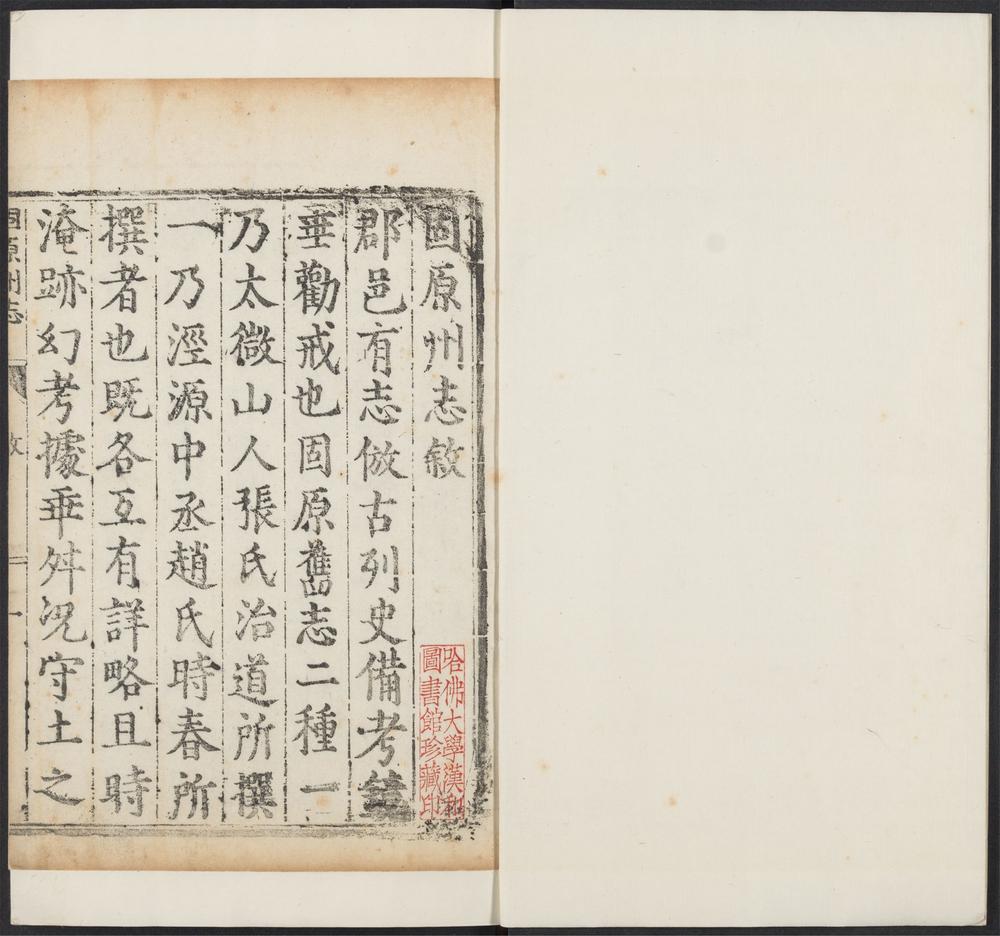 固原州志敘
郡邑有志倣古列史備考鏡
垂勸戒也固原舊志二種一
乃太微山人張氏治道所撰
一乃涇源中丞趙氏時春所
撰者也既各互有詳略且時
淹跡幻考據乖舛況守土之
固原州志
敘
一
哈佛大學漢和
圖書館珍藏印